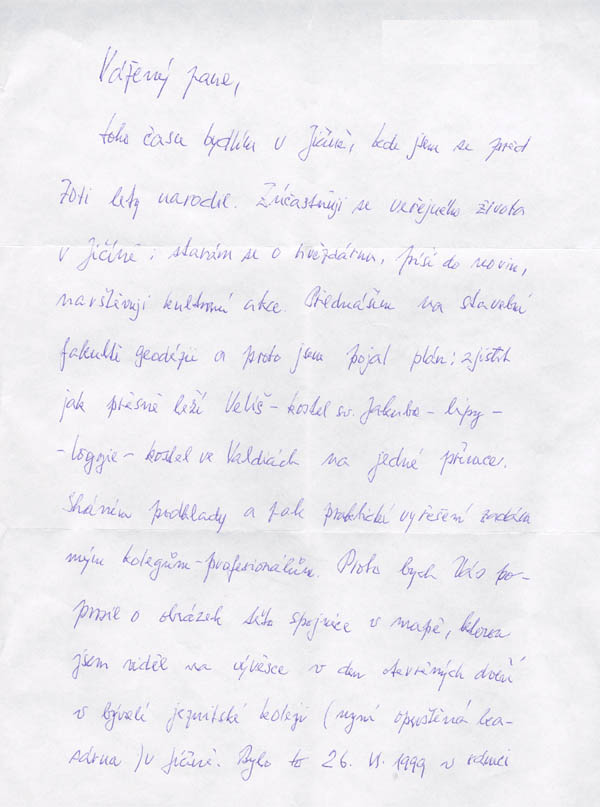 Vážený pane,
toho času bydlím v Jičíně, kde jsem se před
70ti lety narodil. Zúčastňuji se veřejného života
v Jičíně: starám se o hvězdárnu, píši do novin,
navštěvuji kulturní akce. Přednáším na stavební
fakultě geodézii a proto jsem pojal plán: zjistit
jak přesně leží Veliš - kostel sv. Jakuba - lípy -
- loggie - kostel ve Valdicích na jedné přímce.
Sháním podklady a pak praktické vyřešení zadám
mým kolegům - profesionálům. Proto bych Vás po-
prosil o obrázek této spojnice v mapě, kterou
jsem viděl na vývěsce v den otevřených dveří
v bývalé jezuitské koleji (nyní opuštěná ka-
sárna) v Jičíně. Bylo to 26. VI. 1999 v rámci